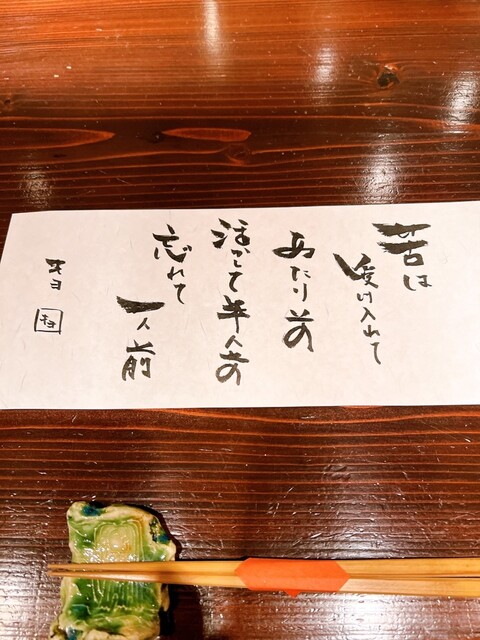 苦は
受け入れて
あたり前
活かして半人前
忘れて
一人前
キヨ
キヨ